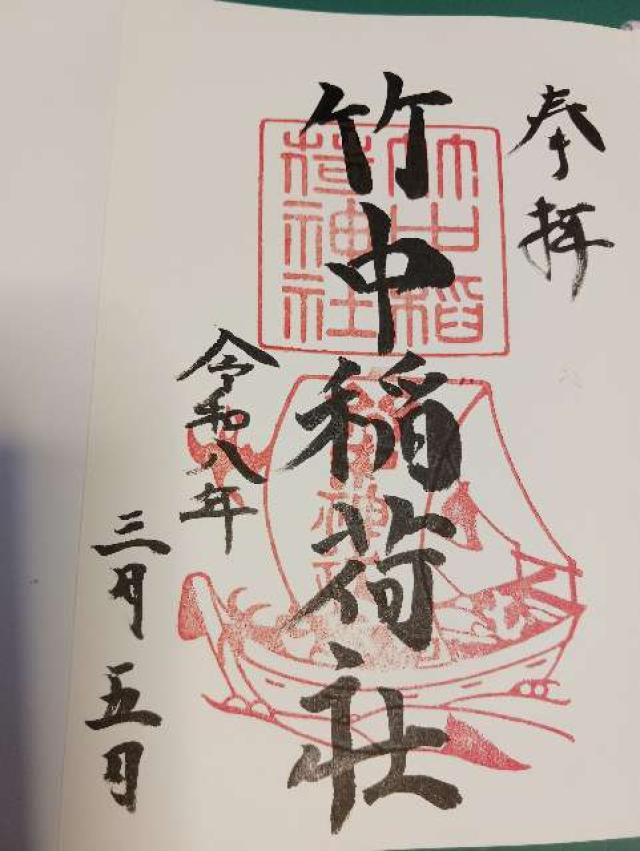 奉拝
竹中稲荷社
令和八年
三月五日
竹中稲
荷神社